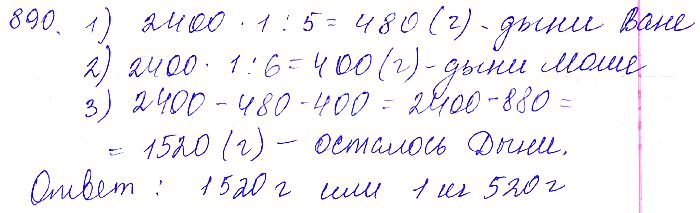 890. 1) 2400 · 1 : 5 = 480 (г) - дыни Ване
2) 2400 · 1 : 6 = 400 (г) - дыни Маше
3) 2400 - 480 - 400 = 2400 - 880 =
= 1520 (г) - осталось дыни.
Ответ : 1520 г или 1 кг 520 г